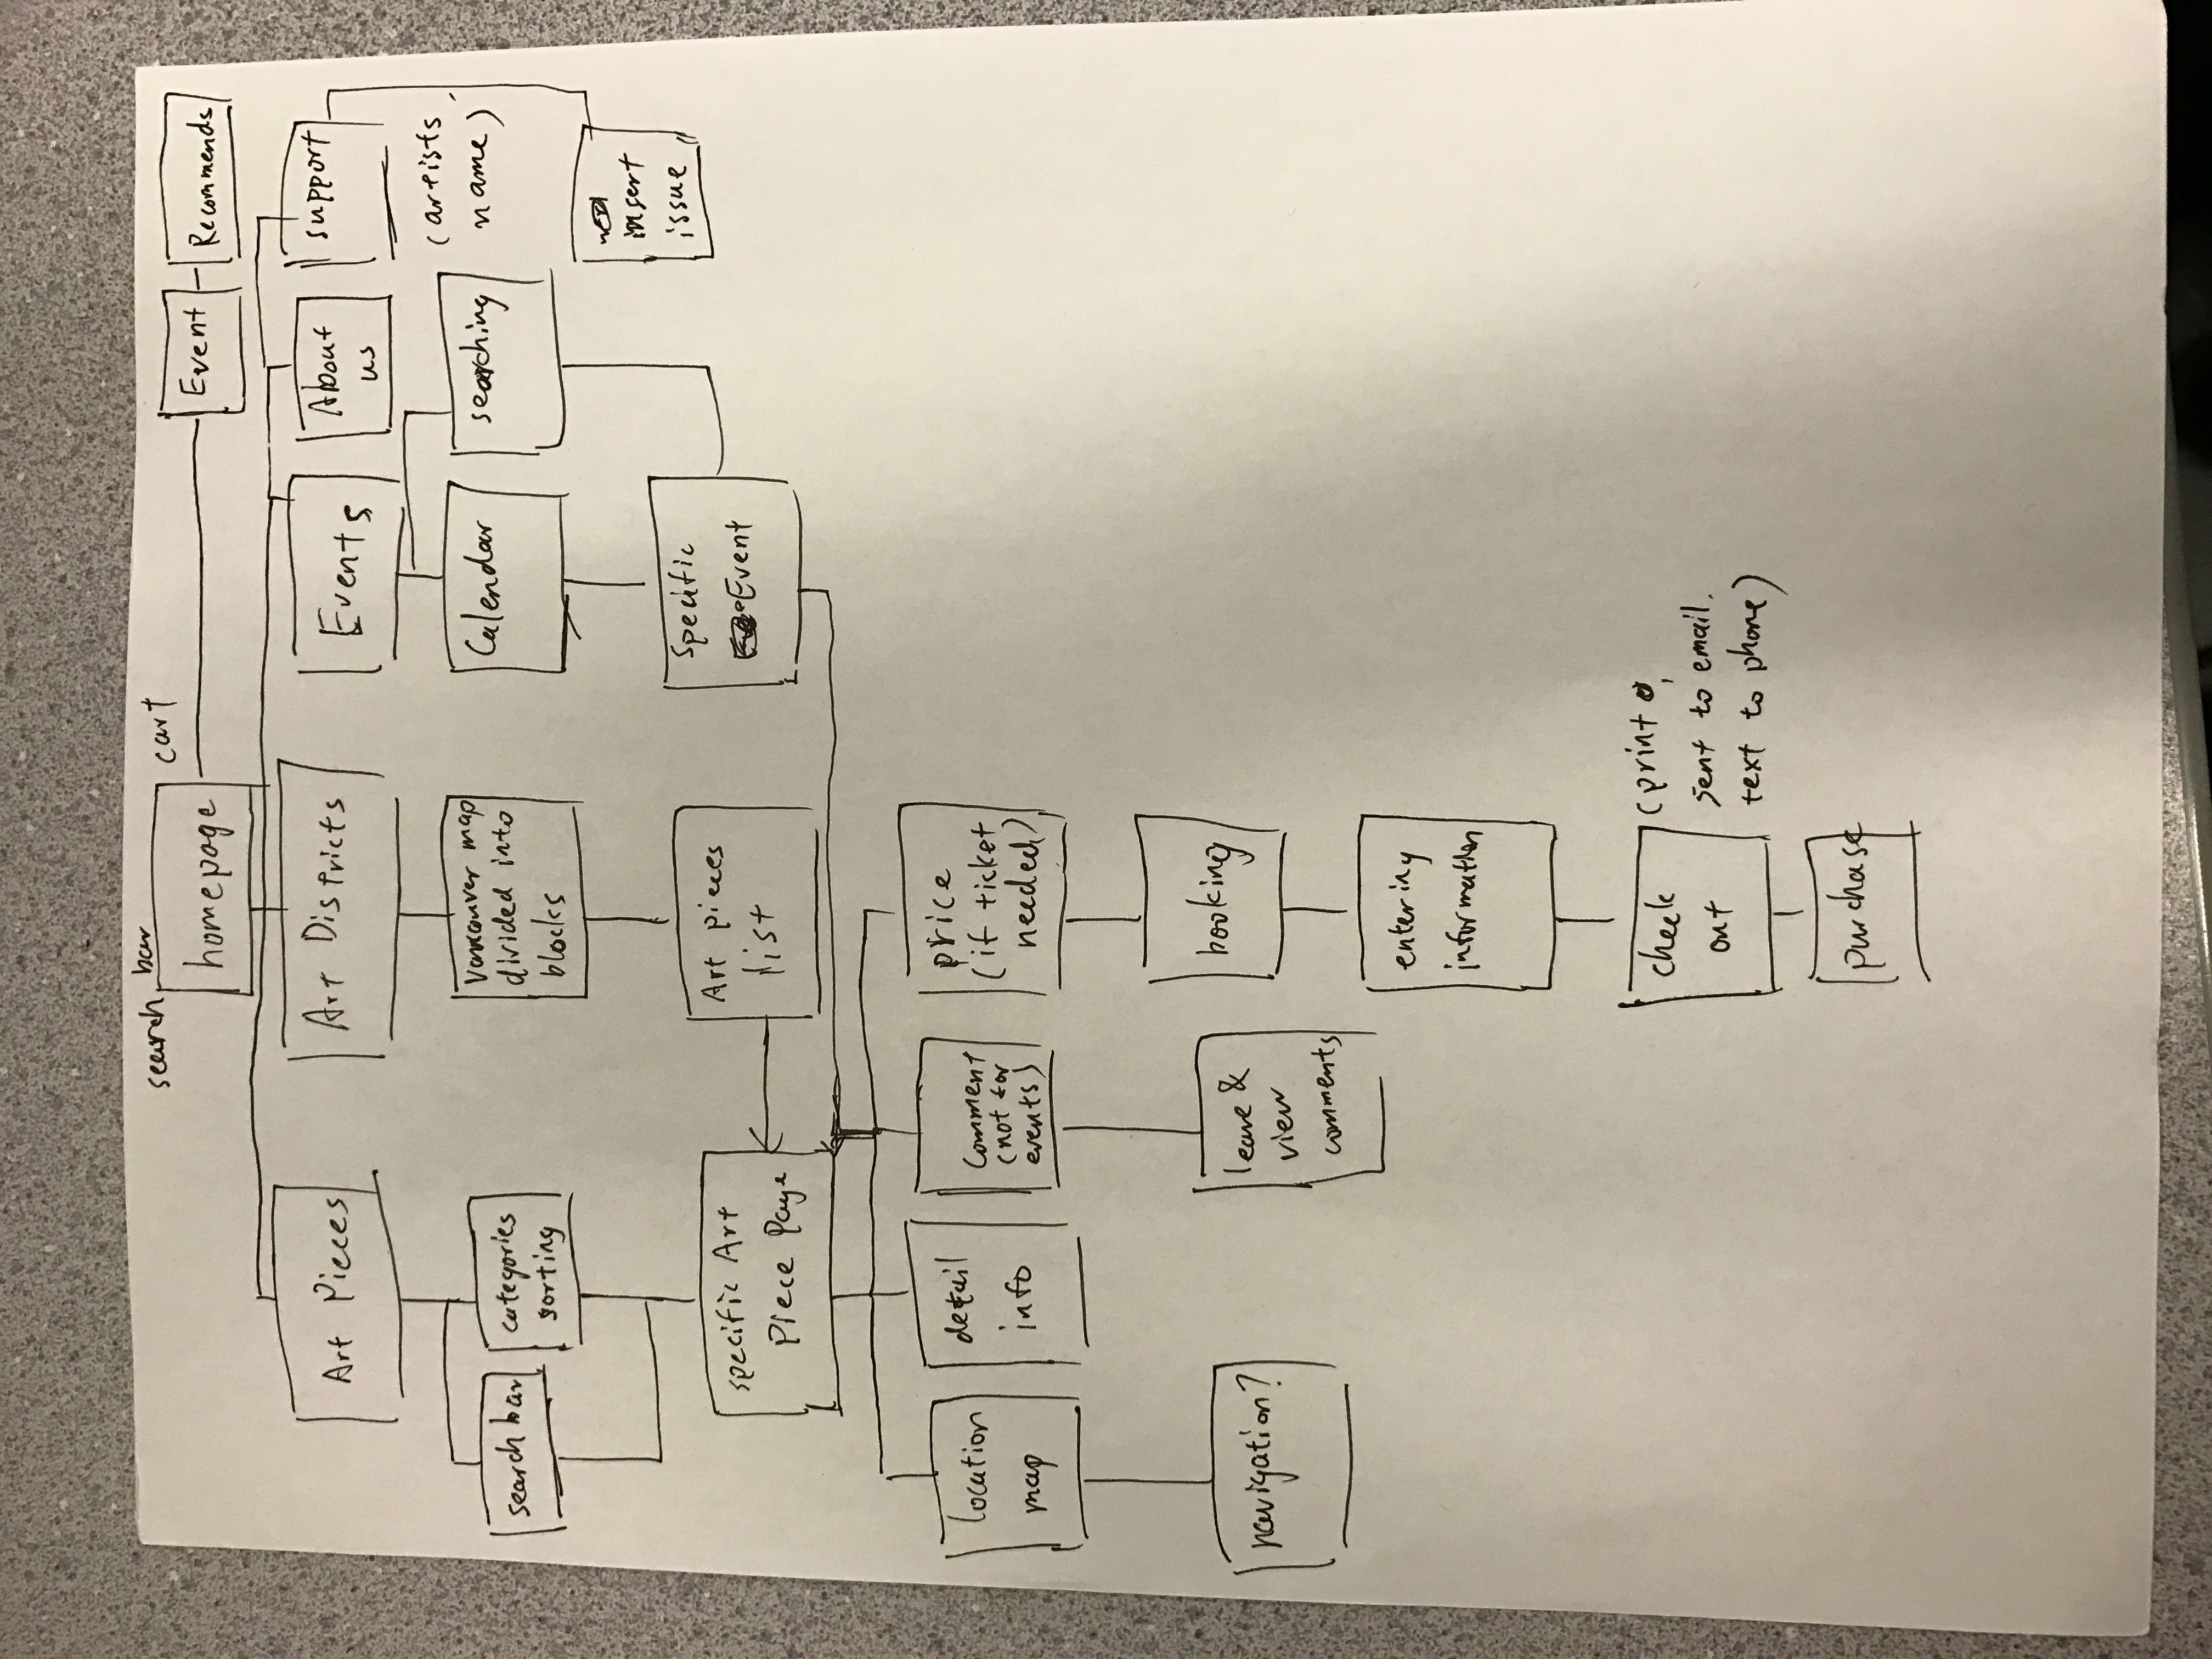 search bar
cart
homepage
Event
Recommends
Art Pieces
Art Districts
Events
About
us
support
(artists
name)
search bar
categories
sorting
Vancouver map
divided into
blocks
Calendar
searching
insert
issue
specific Art
Piece Page
Art pieces
list
Specific
Event
location
map
detail
info
comment
(not for
events)
price
(if ticket
needed)
navigation?
leave &
view
comments
booking
entering
information
check
out
(print ,
sent to email.
text to phone)
purchase